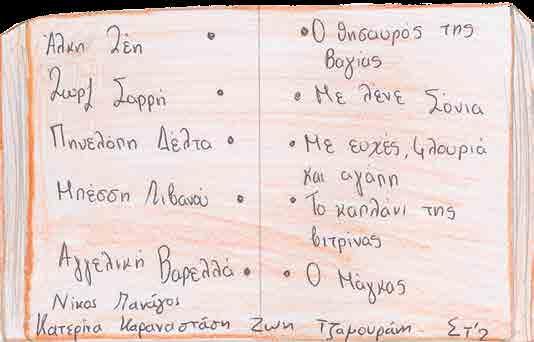 Άλκη Ζέη
Ζωρζ Σαρρή
Πηνελόπη Δέλτα
Μπέσση Λιβανού
Αγγελική Βαρελλά
Ο θησαυρός της
Βαγίας
Με λένε Σόνια
Με ευχές, φλουριά
και αγάπη
Το καπλάνι της
βιτρίνας
Ο Μάγκας
Νίκος Πανάγος
Κατερίνα Καραναστάση Ζωή ΣΤ'2